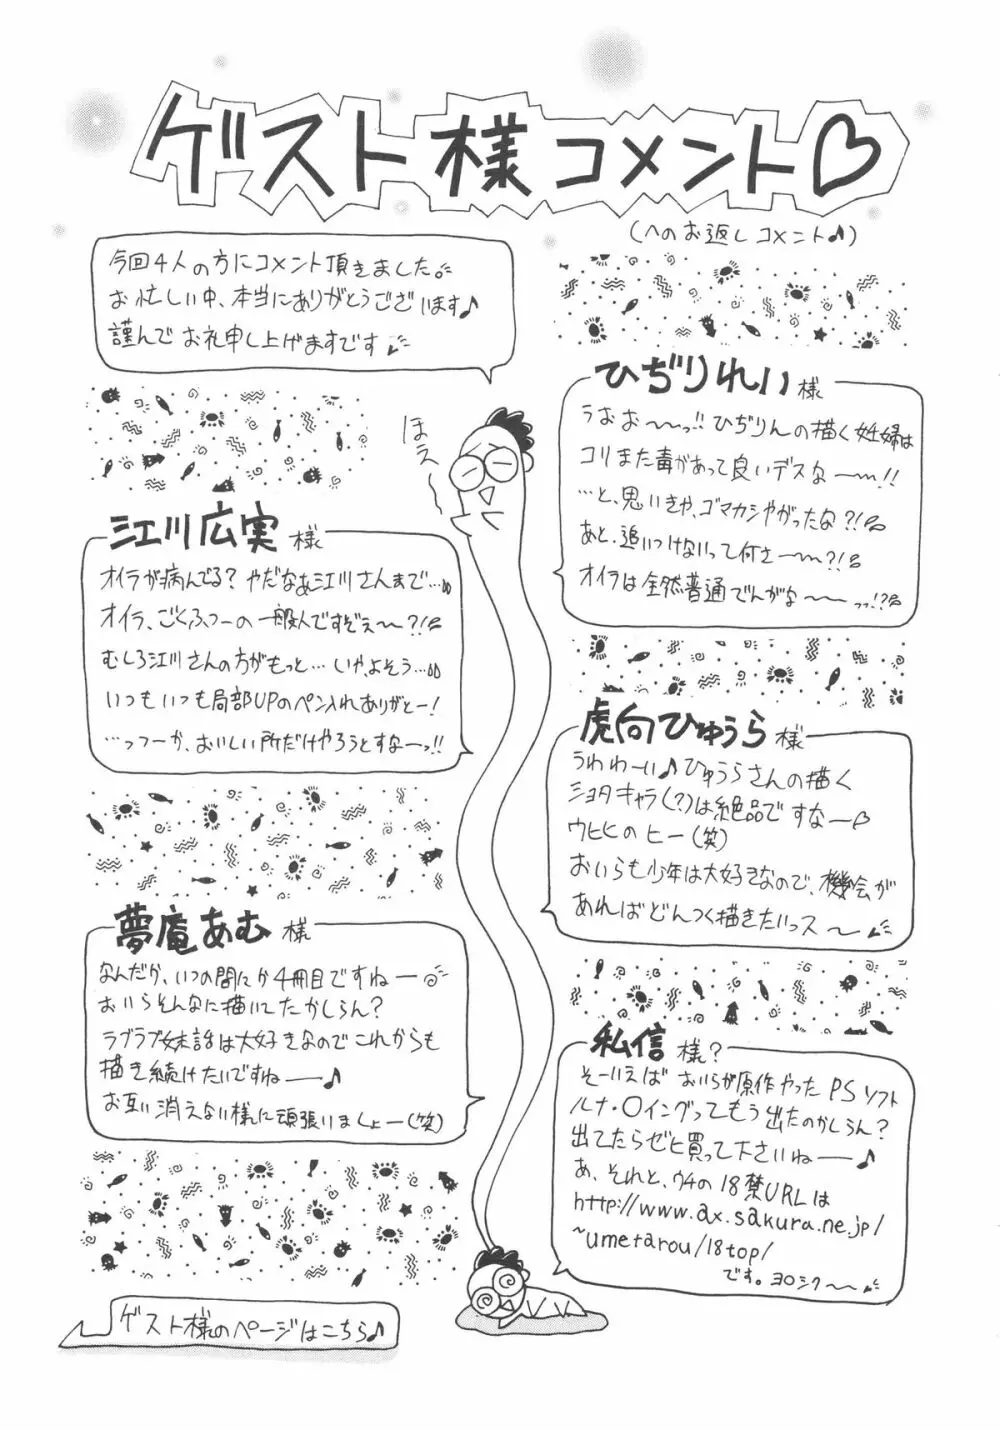 ゲスト様コメント♡
(へのお返しコメント♪)
今回4人の方にコメント頂きました。
お忙しい中、本当にありがとうございます♪
謹んでお礼申し上げますです
ほえ〜
ひぢりれい様
うおお〜〜っ!!ひぢりんの描く妊婦は
コリまた毒があって良いデスな〜〜!!
…と、思いきや、ゴマカシやがったな?!
あと、追いつけないって何さ〜〜?!
オイラは全然普通でんがな〜〜っっ!?
江川広実様
オイラが病んでる?やだなぁ江川さんまで…
オイラ、ごくふつーの一般人ですぞぇ〜?!
むしろ江川さんの方がもっと…いやよそう…
いつもいつも局部UPのペン入れありがとー!
…っつーか、おいしい所だけやろうとすなーっ!!
虎向ひゅうら様
うわわーい♪ひゅうらさんの描く
ショタキャラ(?)は絶品ですなー♡
ウヒヒのヒー(笑)
おいらも少年は大好きなので、機会が
あればどんつく描きたいっス〜
夢庵あむ様
なんだか、いつの間にか4冊目ですねー
おいらそんなに描いてたかしらん?
ラブラブ妹話は大好きなのでこれからも
描き続けたいですねー♪
お互い消えない様に頑張いましょー(笑)
私信様?
そーいえばおいらが原作やったPSソフト
ルナ・〇イングってもう出たのかしらん?
出てたらゼヒ買って下さいねー♪
あ、それと、ウチの18禁URLは
http://www.ax.sakura.ne.jp/
~umetarou/18top/
です。ヨロシク〜〜
ゲスト様のページはこちら♪